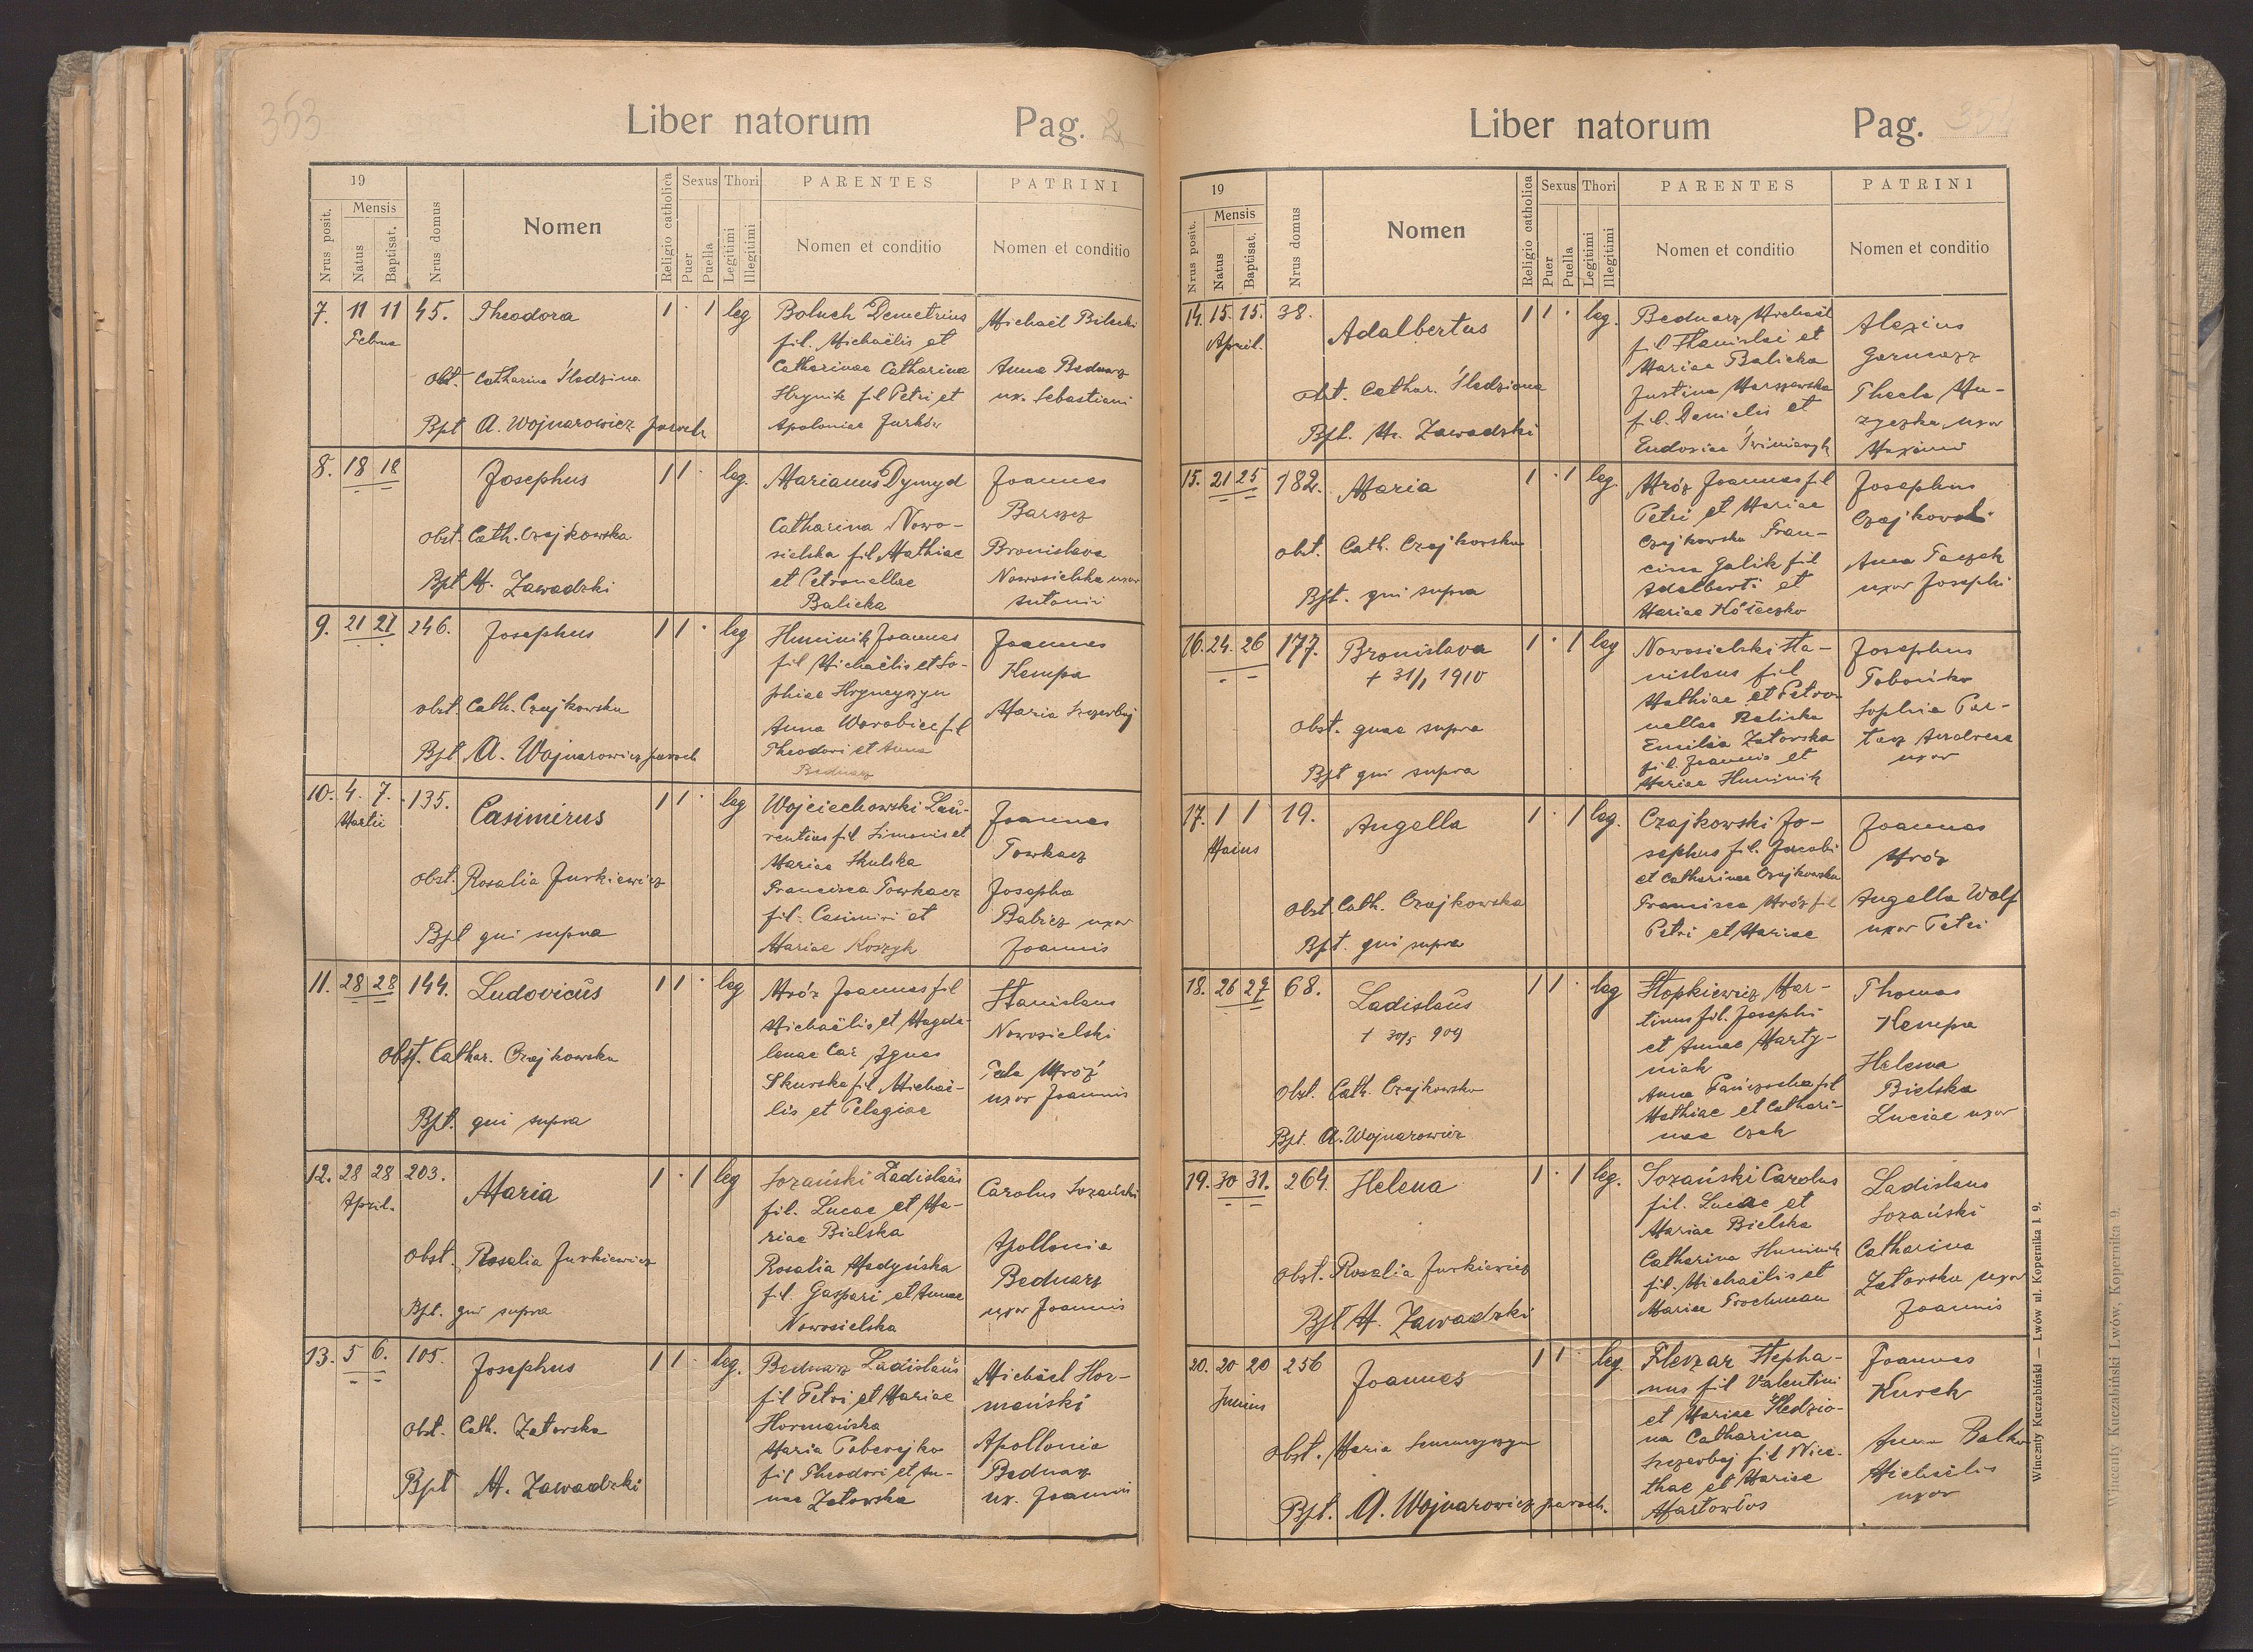 363
Liber natorum
Pag. 2
19
Mensis
Nrus posit.
Natus
Baptisat.
Nrus domus
Nomen
Religio catholica
Sexus
Puer
Puella
Thori
Legitimi
Illegitimi
PARENTES
Nomen et conditio
PATRINI
Nomen et conditio
7. 11 11 45. Theodora 1 · 1 leg
Febru
Obst. Catharina Śledziona
Bpt A. Wojnarowicz paroch
Boluch Demetrius
fil. Michaëlis et
Catharinae Catharina
Hrynik fil Petri et
Apoloniae Jurków
Michaël Bilecki
Anna Bednarz
ux. Sebastiani
8. 18 18 Josephus 1 1 · leg.
Obst. Cath. Czajkowska
Bpt M. Zawadzki
Marianus Dymyd
Catharina Nowo-
sielska fil Mathiae
et Petronellae
Balicka
Joannes
Barszcz
Bronislava
Nowosielska uxor
Antonii
9. 21 21 246. Josephus 1 1 · leg
Obst. Cath. Czajkowska
Bpt A. Wojnarowicz paroch
Huminik Joannes
fil Michaëlis et So-
phiae Hryneyszyn
Anna Worobiec fil
Theodori et Anna
Bednarz
Joannes
Kempa
Maria Szczerbaj
10. 4. 7. 135. Casimirus 1 1 · leg
Martii
Obst. Rosalia Jurkiewicz
Bpt qui supra
Wojciechowski Lau-
rentius fil Simonis et
Mariae Skulska
Francisca Towkacz
fil. Casimiri et
Mariae Koszyk
Joannes
Towkacz
Josepha
Babicz uxor
Joannis
11. 28 28 144. Ludovicus 1 1 · leg
Obst. Cathar. Czajkowska
Bpt. qui supra
Mróz Joannes fil
Michaëlis et Magda-
lenae Car Agnes
Skurska fil Michaë-
lis et Pelagiae
Stanislaus
Nowosielski
Mróz
uxor Joannis
12. 28 28 203. Maria 1 · 1 leg
April.
Obst. Rosalia Jurkiewicz
Bpt. qui supra
Sozański Ladislaus
fil. Lucae et Ma-
riae Bielska
Rosalia Medyńska
fil. Gaspari et Annae
Nowosielska
Carolus Sozański
Apollonia
Bednarz
uxor Joannis
13. 5 6. 105. Josephus 1 1 · leg.
Obst. Cath. Zatorska
Bpt M. Zawadzki
Bednarz Ladislaus
fil Petri et Mariae
Hormańska
Maria Poberejko
fil Theodori et An-
nae Zatorska
Michaël Hor-
mański
Apollonia
Bednarz
ux. Joannis
Liber natorum
Pag.
19
Mensis
Nrus posit.
Natus
Baptisat.
Nrus domus
Nomen
Religio catholica
Sexus
Puer
Puella
Thori
Legitimi
Illegitimi
PARENTES
Nomen et conditio
PATRINI
Nomen et conditio
14. 15. 15. 38. Adalbertus 1 1 · leg.
April.
Obst. Cathar. Śledziona
Bpt. M. Zawadzki
Bednarz Michaël
fil Stanislai et
Mariae Balicka
Justina Marszewska
fil. Danielis et
Eudoxiae
Alexius
Garncarz
Thecla Mu-
zyczka uxor
Maximi
15. 21 25 182. Maria 1 · 1 leg.
Obst. Cath. Czajkowska
Bpt. qui supra
Mróz Joannes fil
Petri et Mariae
Czajkowska Fran-
cisca Galik fil
Adalberti et
Mariae
Josephus
Czajkowski
Anna Tarczak
uxor Josephi
16. 24. 26 177. Bronislava 1 · 1 leg
+ 31/1 1910
Obst. quae supra
Bpt qui supra
Nowosielski Sta-
nislaus fil
Mathiae et Petro-
nellae Balicka
Emilia Zatorska
fil. Joannis et
Mariae Huminik
Josephus
Sophia Par-
tacz Andreae
uxor
17. 1 1 19. Angella 1 · 1 leg.
Maius
Obst. Cath. Czajkowska
Bpt. qui supra
Czajkowski Jo-
sephus fil. Jacobi
et Catharinae Czajkowska
Francisca Mróz fil
Petri et Mariae
Joannes
Mróz
Angella Wolf
uxor Petri
18. 26 27 68. Ladislaus 1 1 · leg
+ 30/5 909
Obst. Cath. Czajkowska
Bpt. A. Wojnarowicz
Stopkiewicz Mar-
tinus fil. Josephi
et Annae Marty-
niak
Anna Pańczocha fil
Mathiae et Cathari-
nae Czak
Thomas
Kempa
Helena
Bielska
Luciae uxor
19. 30 31. 264. Helena 1 · 1 leg.
Obst. Rosalia Jurkiewicz
Bpt M. Zawadzki
Sozański Carolus
fil. Lucae et
Mariae Bielska
Catharina Huminik
fil. Michaëlis et
Mariae Trochman
Ladislaus
Sozański
Catharina
Zatorska uxor
Joannis
20. 20 20 256 Joannes 1 1 · leg.
Junius
Obst. Maria
Bpt. A. Wojnarowicz paroch.
Fleszar Stepha-
nus fil Valentini
et Mariae Śledzio-
na Catharina
Szczerbaj fil Nice-
thae et Mariae
Joannes
Kurek
Anna Balko
Michaëlis
uxor
Winczenty Kuczabiński — Lwów ul. Kopernika l. 9.
Wincenty Kuczabiński Lwów, Kopernika 9.